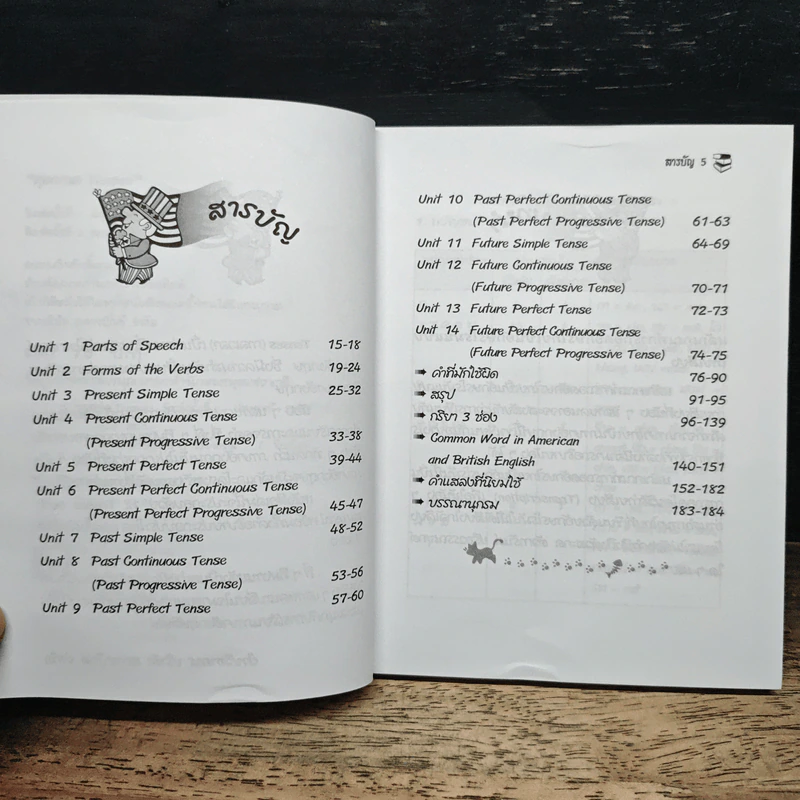 สารบัญ
Unit 1 Parts of Speech 15-18
Unit 2 Forms of the Verbs 19-24
Unit 3 Present Simple Tense 25-32
Unit 4 Present Continuous Tense
(Present Progressive Tense) 33-38
Unit 5 Present Perfect Tense 39-44
Unit 6 Present Perfect Continuous Tense
(Present Perfect Progressive Tense) 45-47
Unit 7 Past Simple Tense 48-52
Unit 8 Past Continuous Tense
(Past Progressive Tense) 53-56
Unit 9 Past Perfect Tense 57-60
สารบัญ 5
Unit 10 Past Perfect Continuous Tense
(Past Perfect Progressive Tense) 61-63
Unit 11 Future Simple Tense 64-69
Unit 12 Future Continuous Tense
(Future Progressive Tense) 70-71
Unit 13 Future Perfect Tense 72-73
Unit 14 Future Perfect Continuous Tense
(Future Perfect Progressive Tense) 74-75
➡ คำที่มักใช้ผิด 76-90
➡ สรุป 91-95
➡ กริยา 3 ช่อง 96-139
➡ Common Word in American
and British English 140-151
➡ คำแสลงที่นิยมใช้ 152-182
➡ บรรณานุกรม 183-184